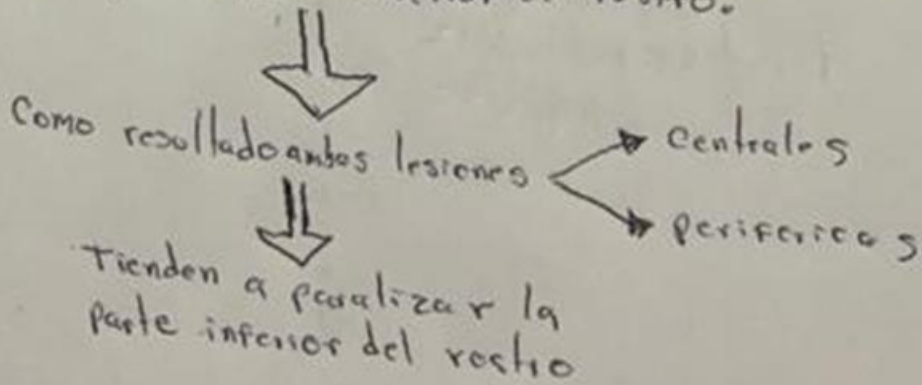 Como resultado ambos lesiones
centrales
perifericas
Tienden a paralizar la
parte inferior del rostro